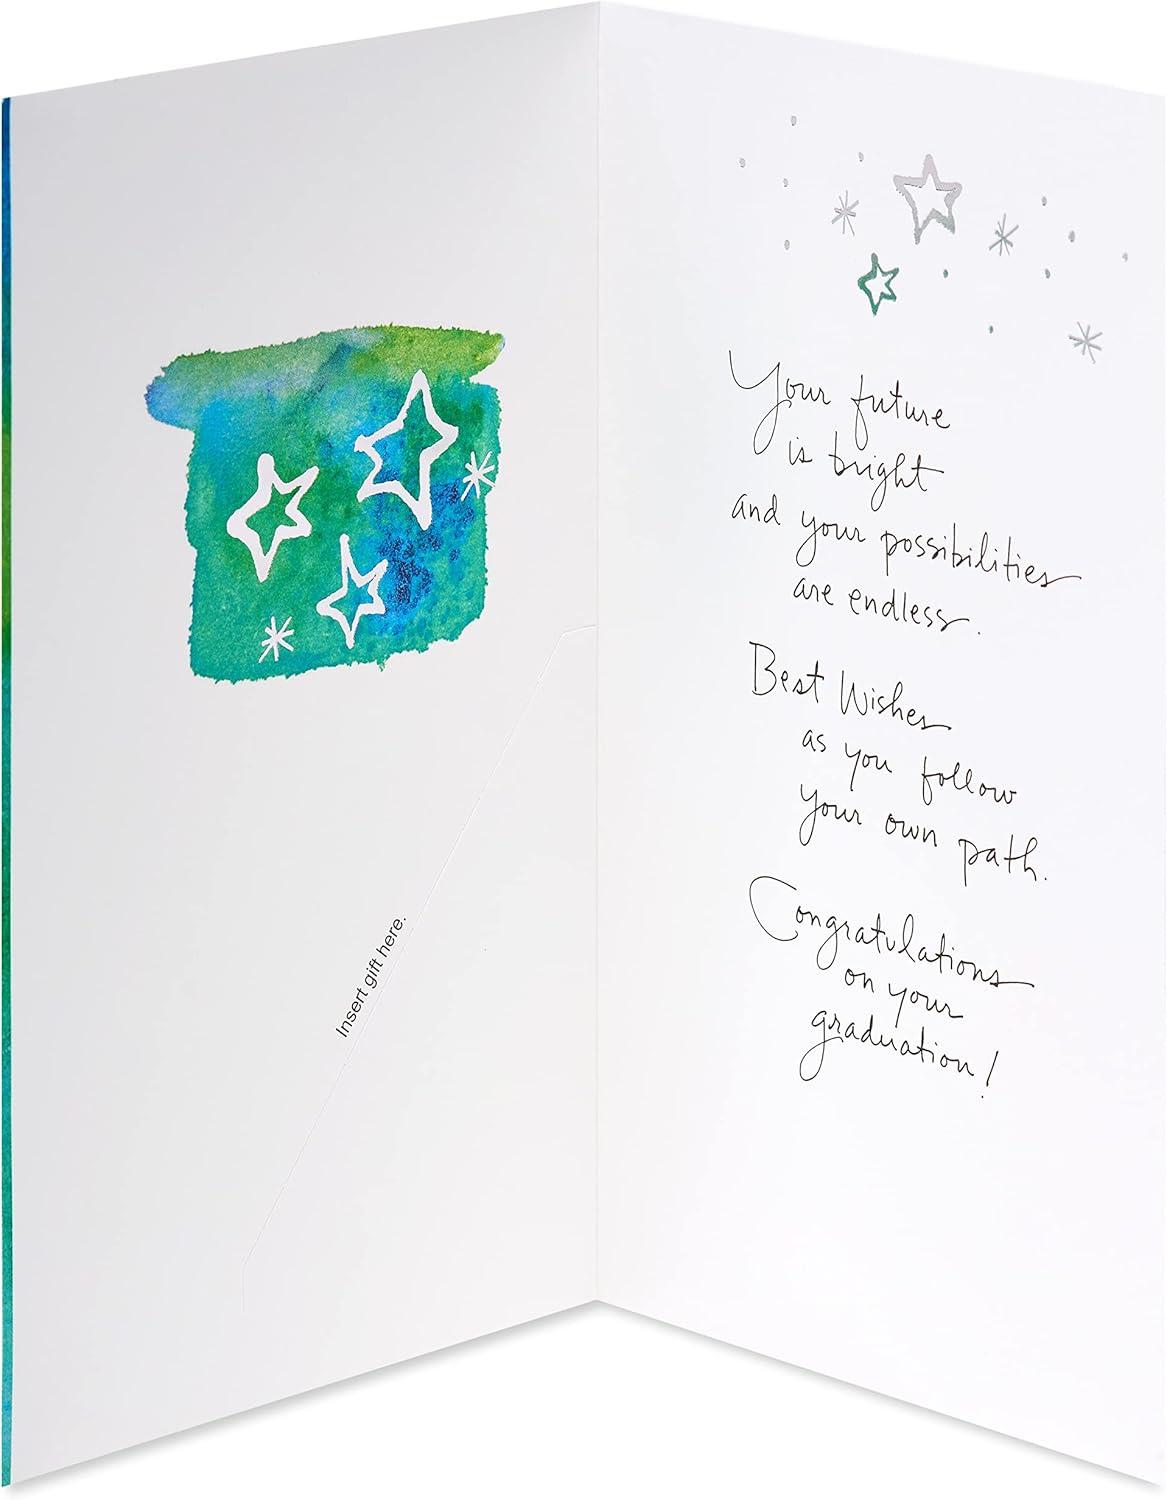 Insert gift here.
Your future
is bright
and your possibilities
are endless.
Best Wishes
as you follow
your own path.
Congratulations
on your
graduation!